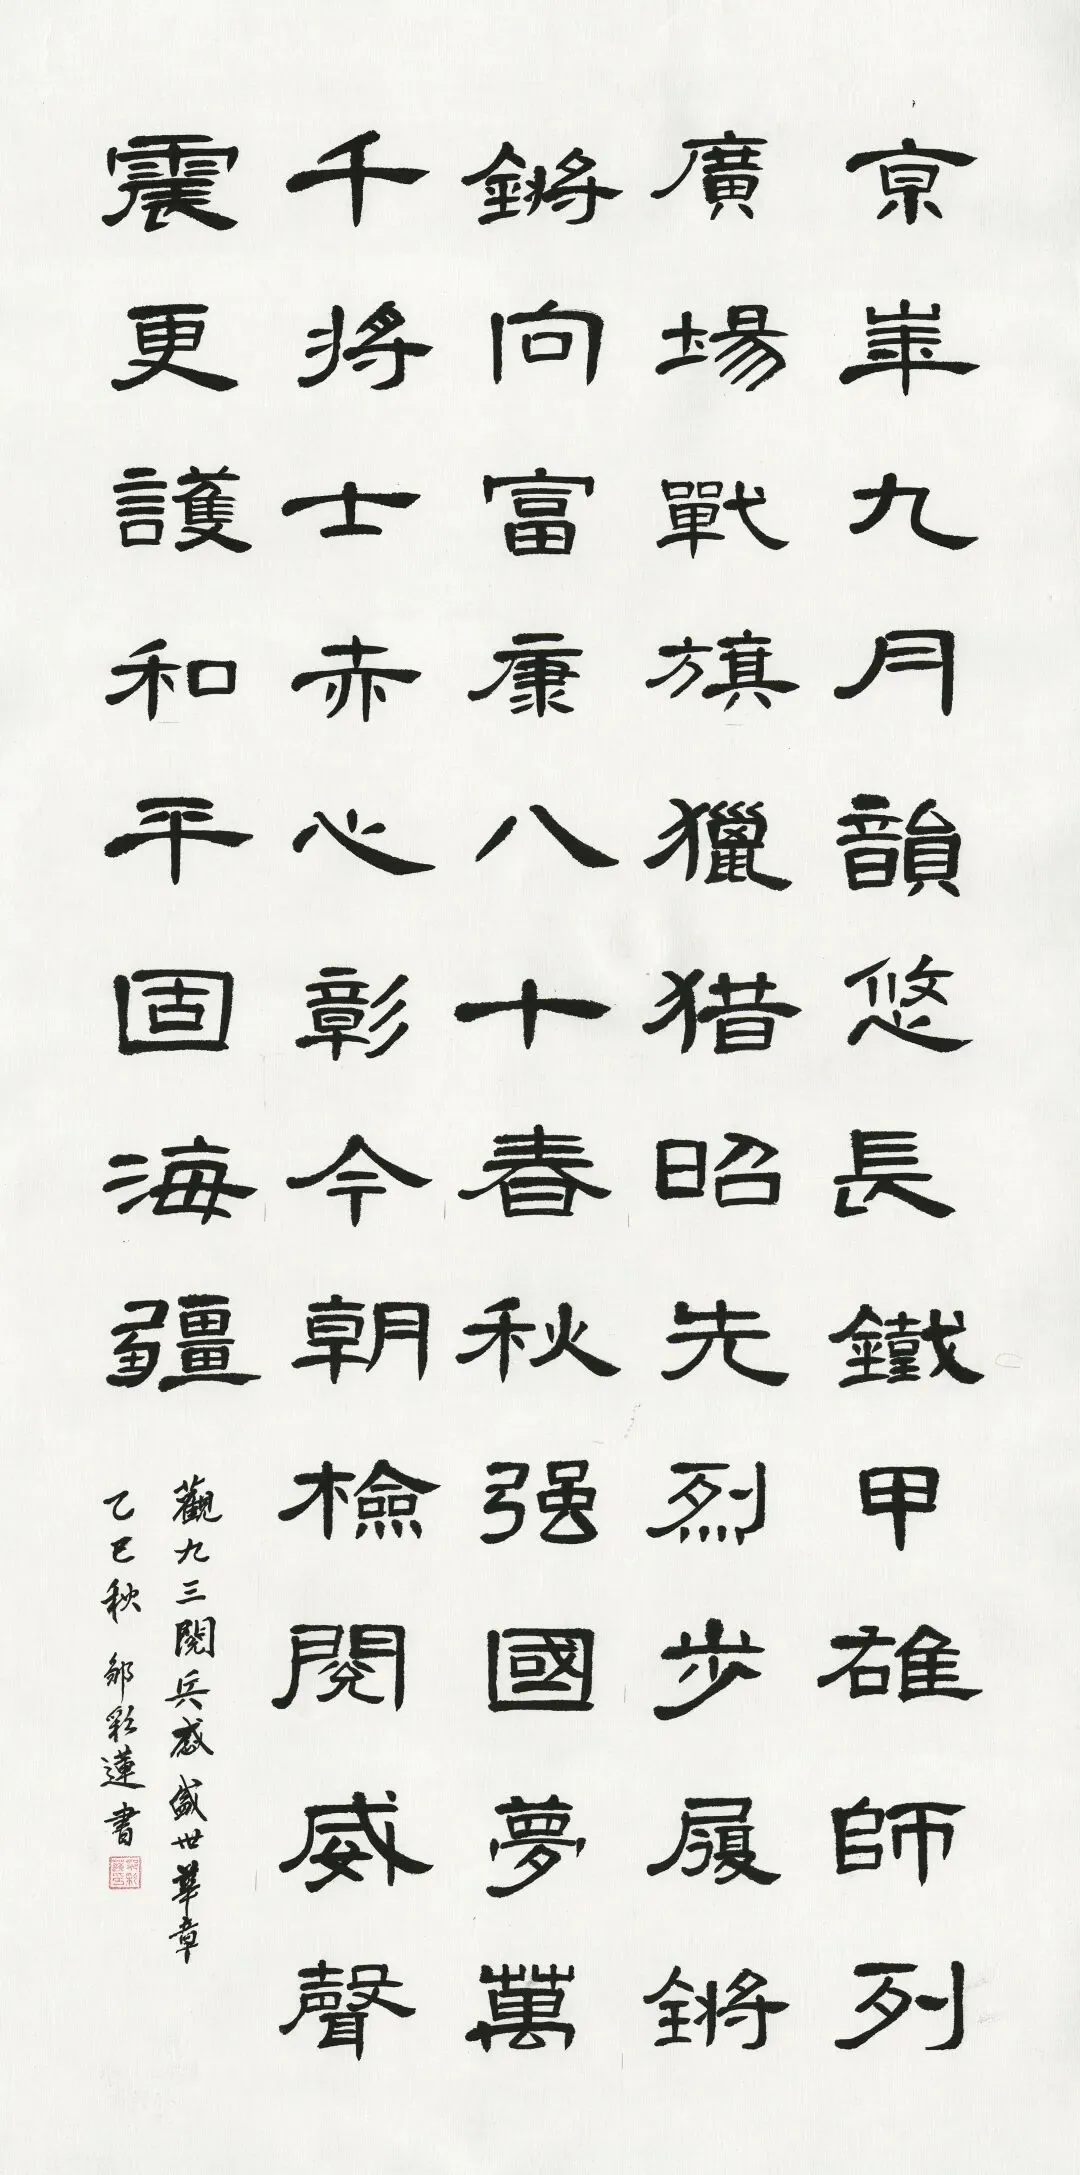 京華九月韻悠長鐵甲雄師列
廣場戰旗獵猎昭先烈步履鏘
鏘向富康八十春秋强國夢萬
千將士赤心彰今朝檢閱威聲
震更護和平固海疆
觀九三閱兵感盛世華章
乙巳秋 邹彩蓮書